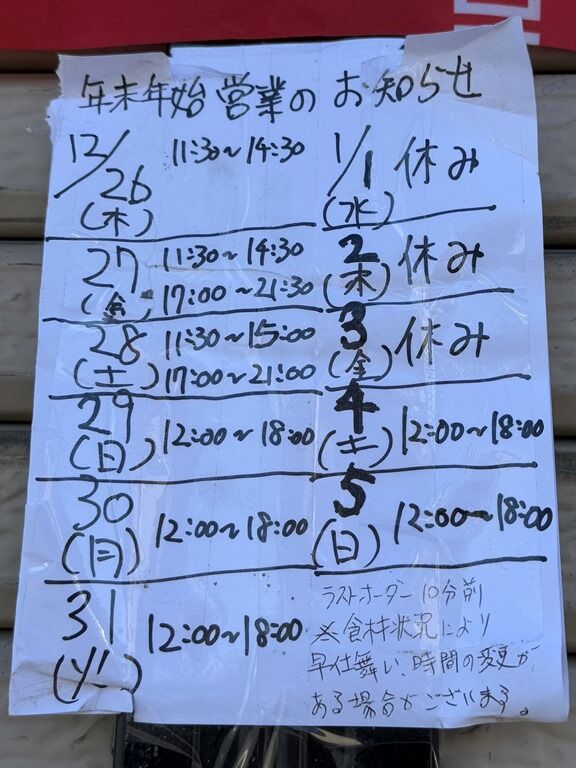 年末年始営業のお知らせ
12/26(木) 11:30~14:30
27(金) 11:30~14:30
17:00~21:30
28(土) 11:30~15:00
17:00~21:00
29(日) 12:00~18:00
30(月) 12:00~18:00
31(火) 12:00~18:00
1/1(水) 休み
2(木) 休み
3(金) 休み
4(土) 12:00~18:00
5(日) 12:00~18:00
ラストオーダー 10分前
※食材状況により
早仕舞い、時間の変更が
ある場合がございます。